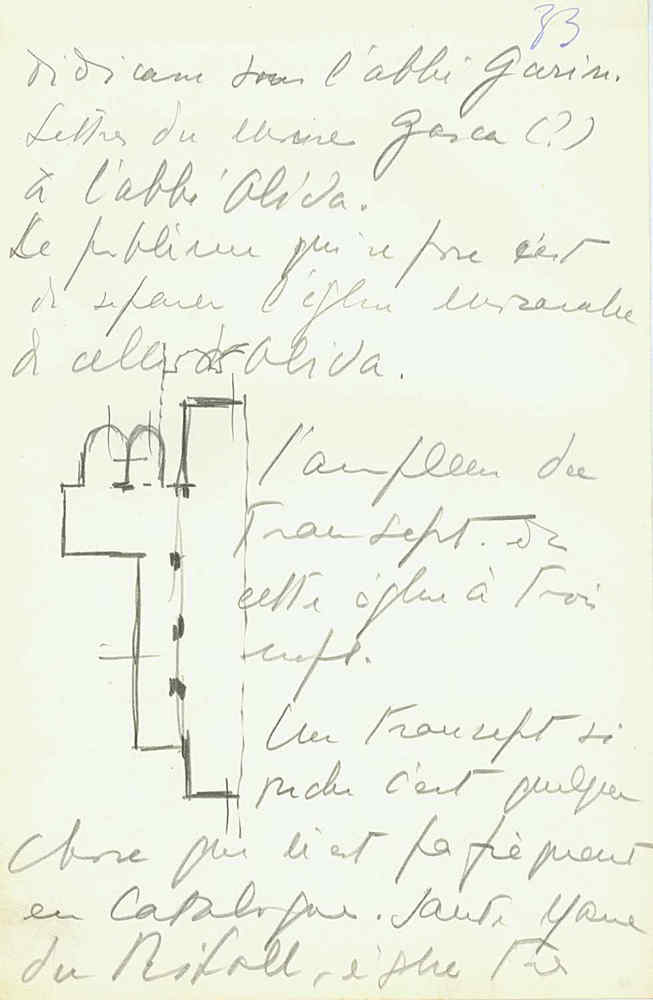 33
sous l'abbé Garin.
Lettres du moine Garca (?)
à l'abbé Oliva.
Le problème qui se pose c'est
de separer l'église mozarabe
de celle d'Oliva.
l'ampleur du
transept. de
cette église à trois
nefs.
Un transept si
riche c'est quelque
chose qui n'est pa frèquent
en Catalogne. Sante Marie
du Ripoll, èglise tres